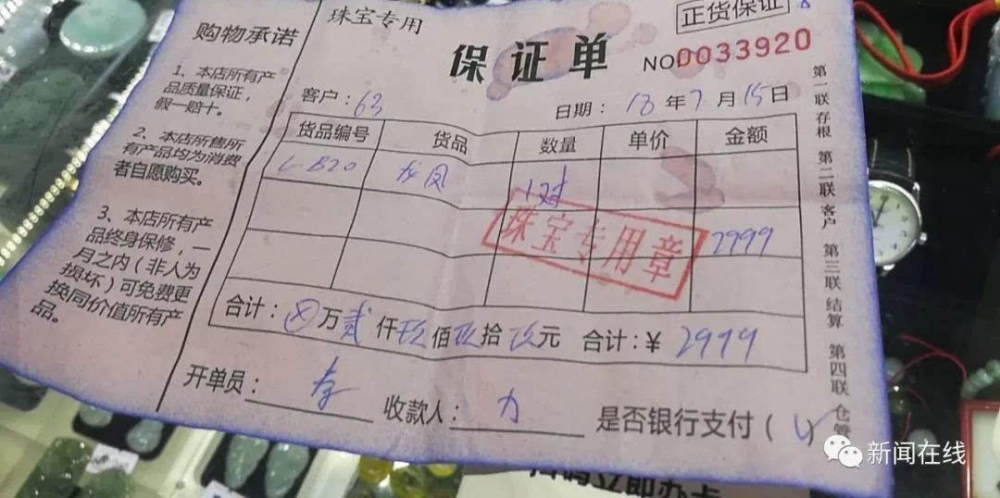 购物承诺
1、本店所有产
品质量保证，
假一赔十。
2、本店所售所
有产品均为消费
者自愿购买。
3、本店所有产
品终身保修，一
月之内（非人为
损坏）可免费更
换同价值所有产
品。
珠宝专用
正货保证
保证单
NO 0033920
客户：63
日期：18年7月15日
货品编号 货品 数量 单价 金额
LB20 龙凤 1对
2999
珠宝专用章
合计：⊗万贰仟玖佰玖拾玖元 合计：￥2999
开单员： 收款人：力 是否银行支付（✓
第一联 存根 第二联 客户 第三联 结算 第四联 仓管
新闻在线